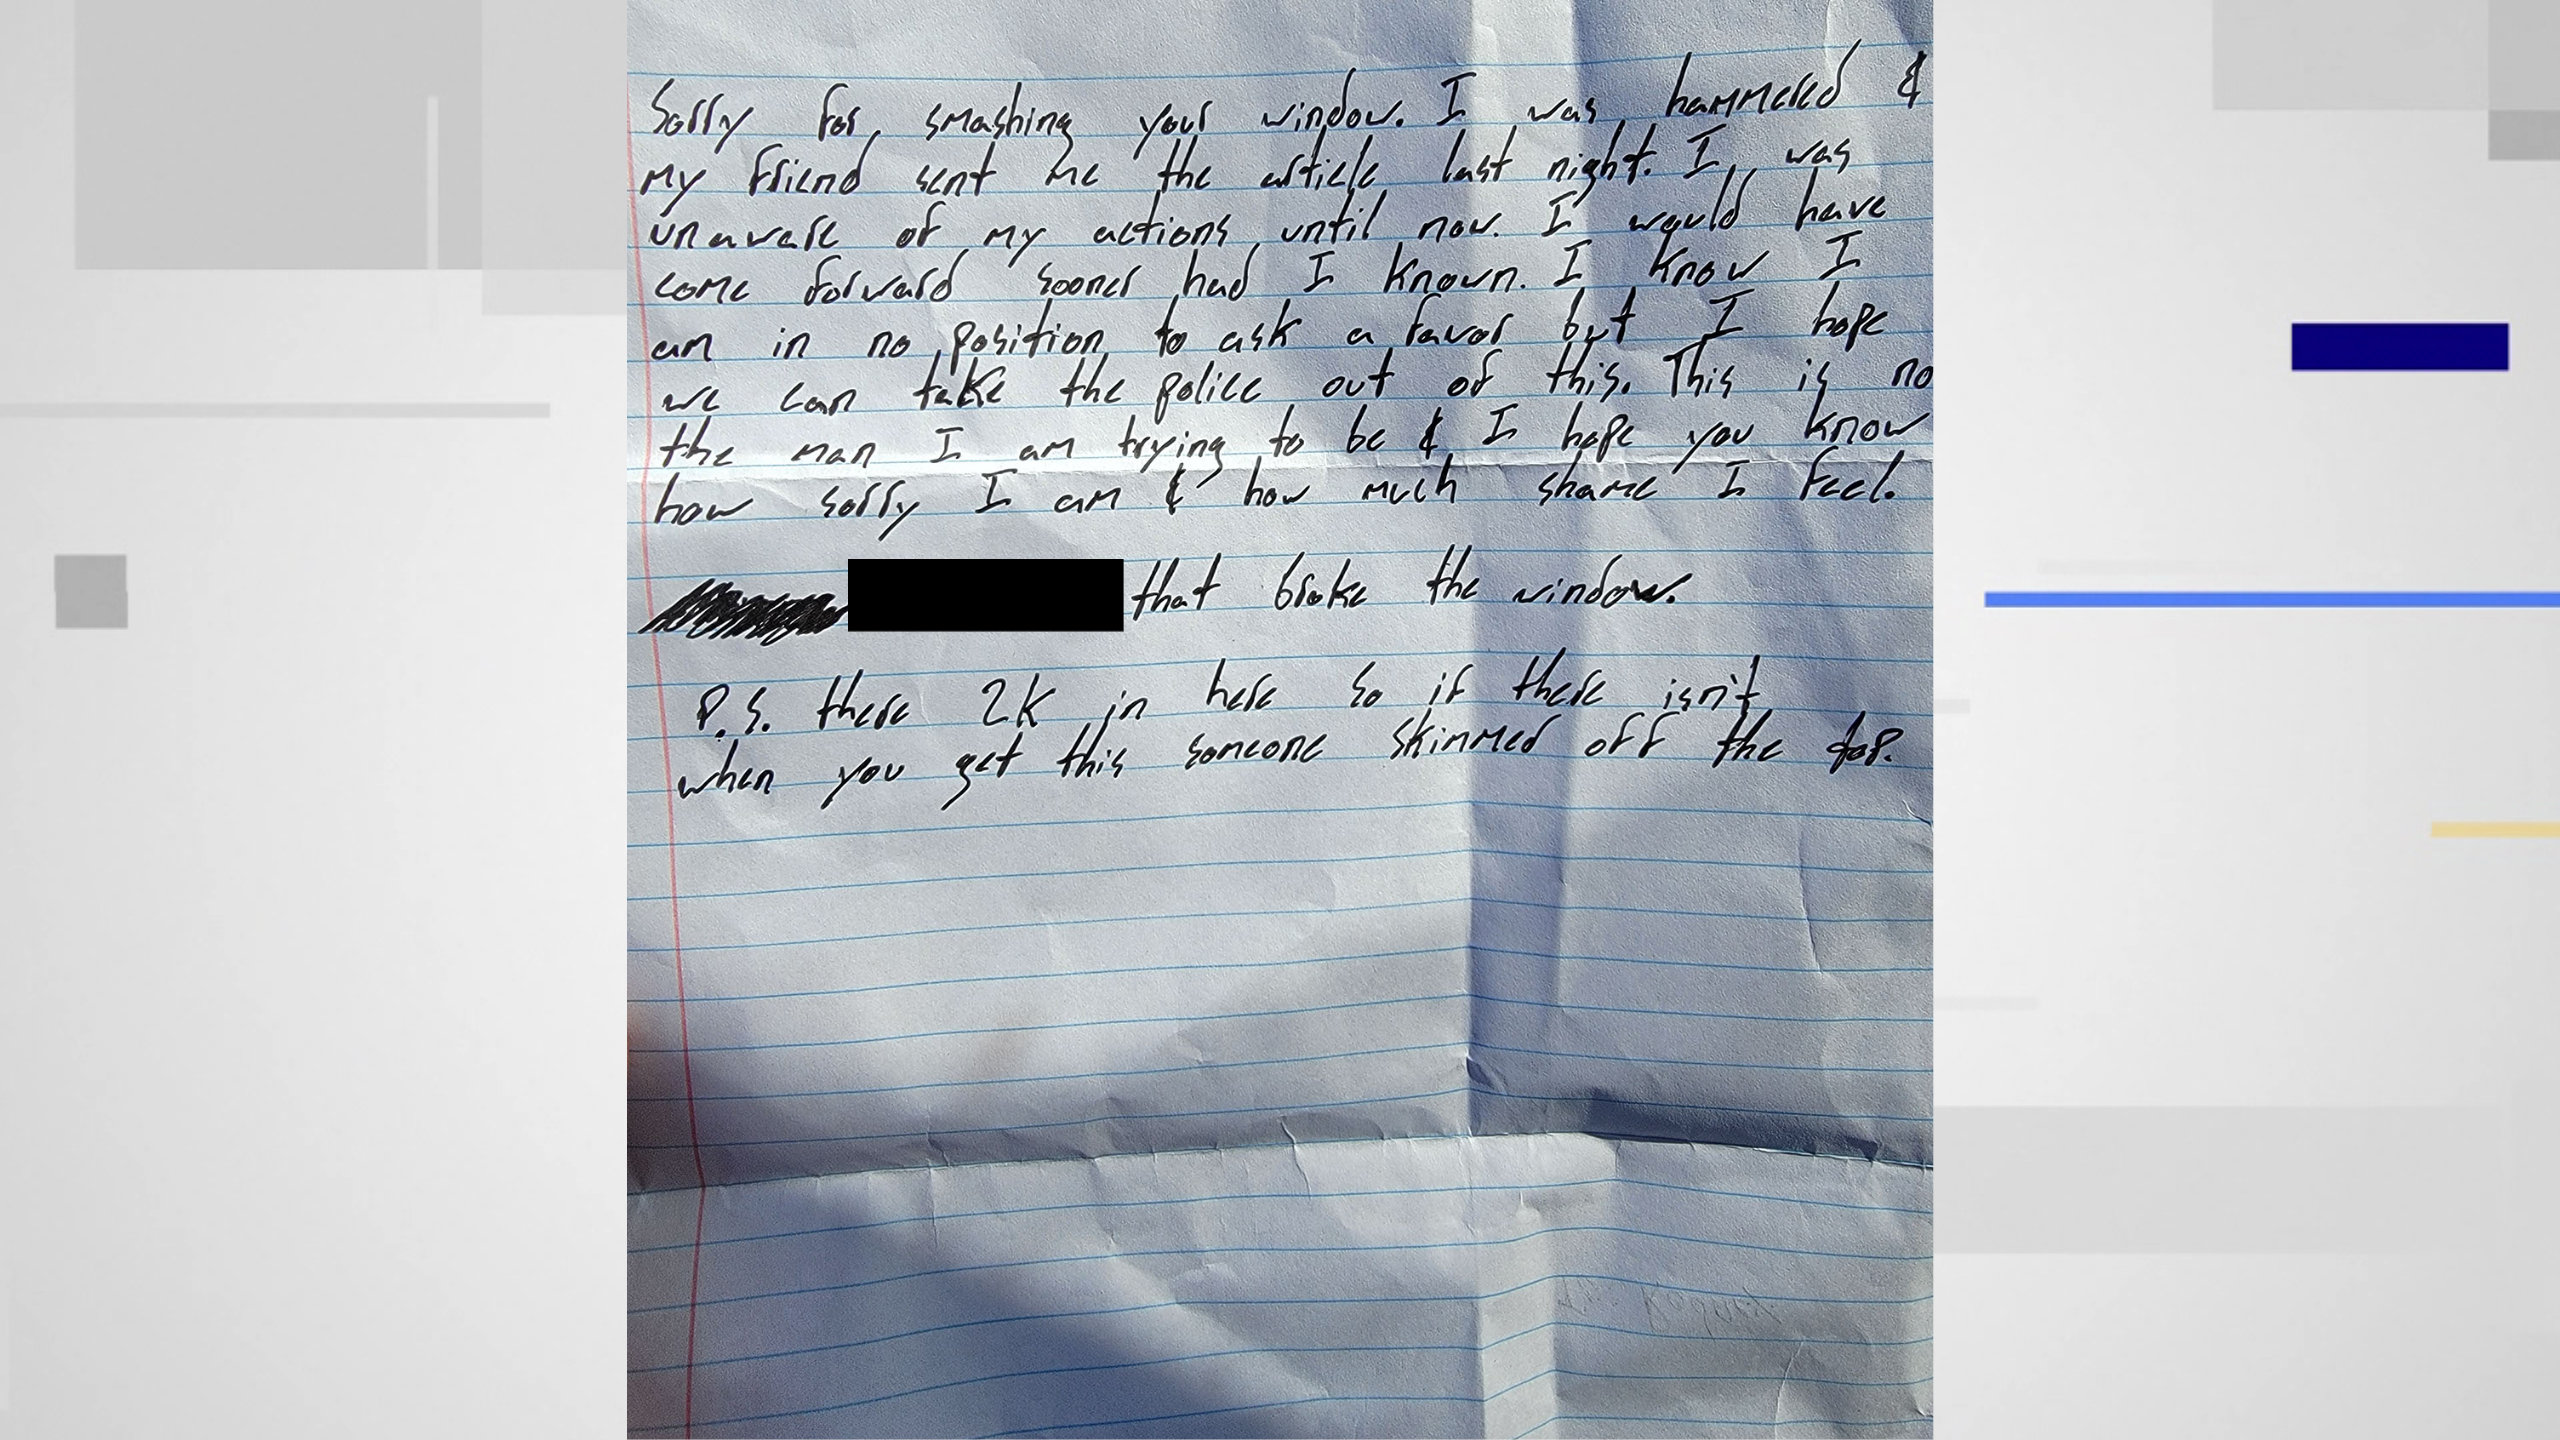 Sorry for smashing your window. I was hammered &
my friend sent me the article last night. I was
unaware of my actions until now. I would have
come forward sooner had I known. I know I
am in no position to ask a favor but I hope
we can take the police out of this. This is no
the man I am trying to be & I hope you know
how sorry I am & how much shame I feel.
that broke the window.
P.S. there 2K in here so if there isn't
when you get this someone skimmed off the top.